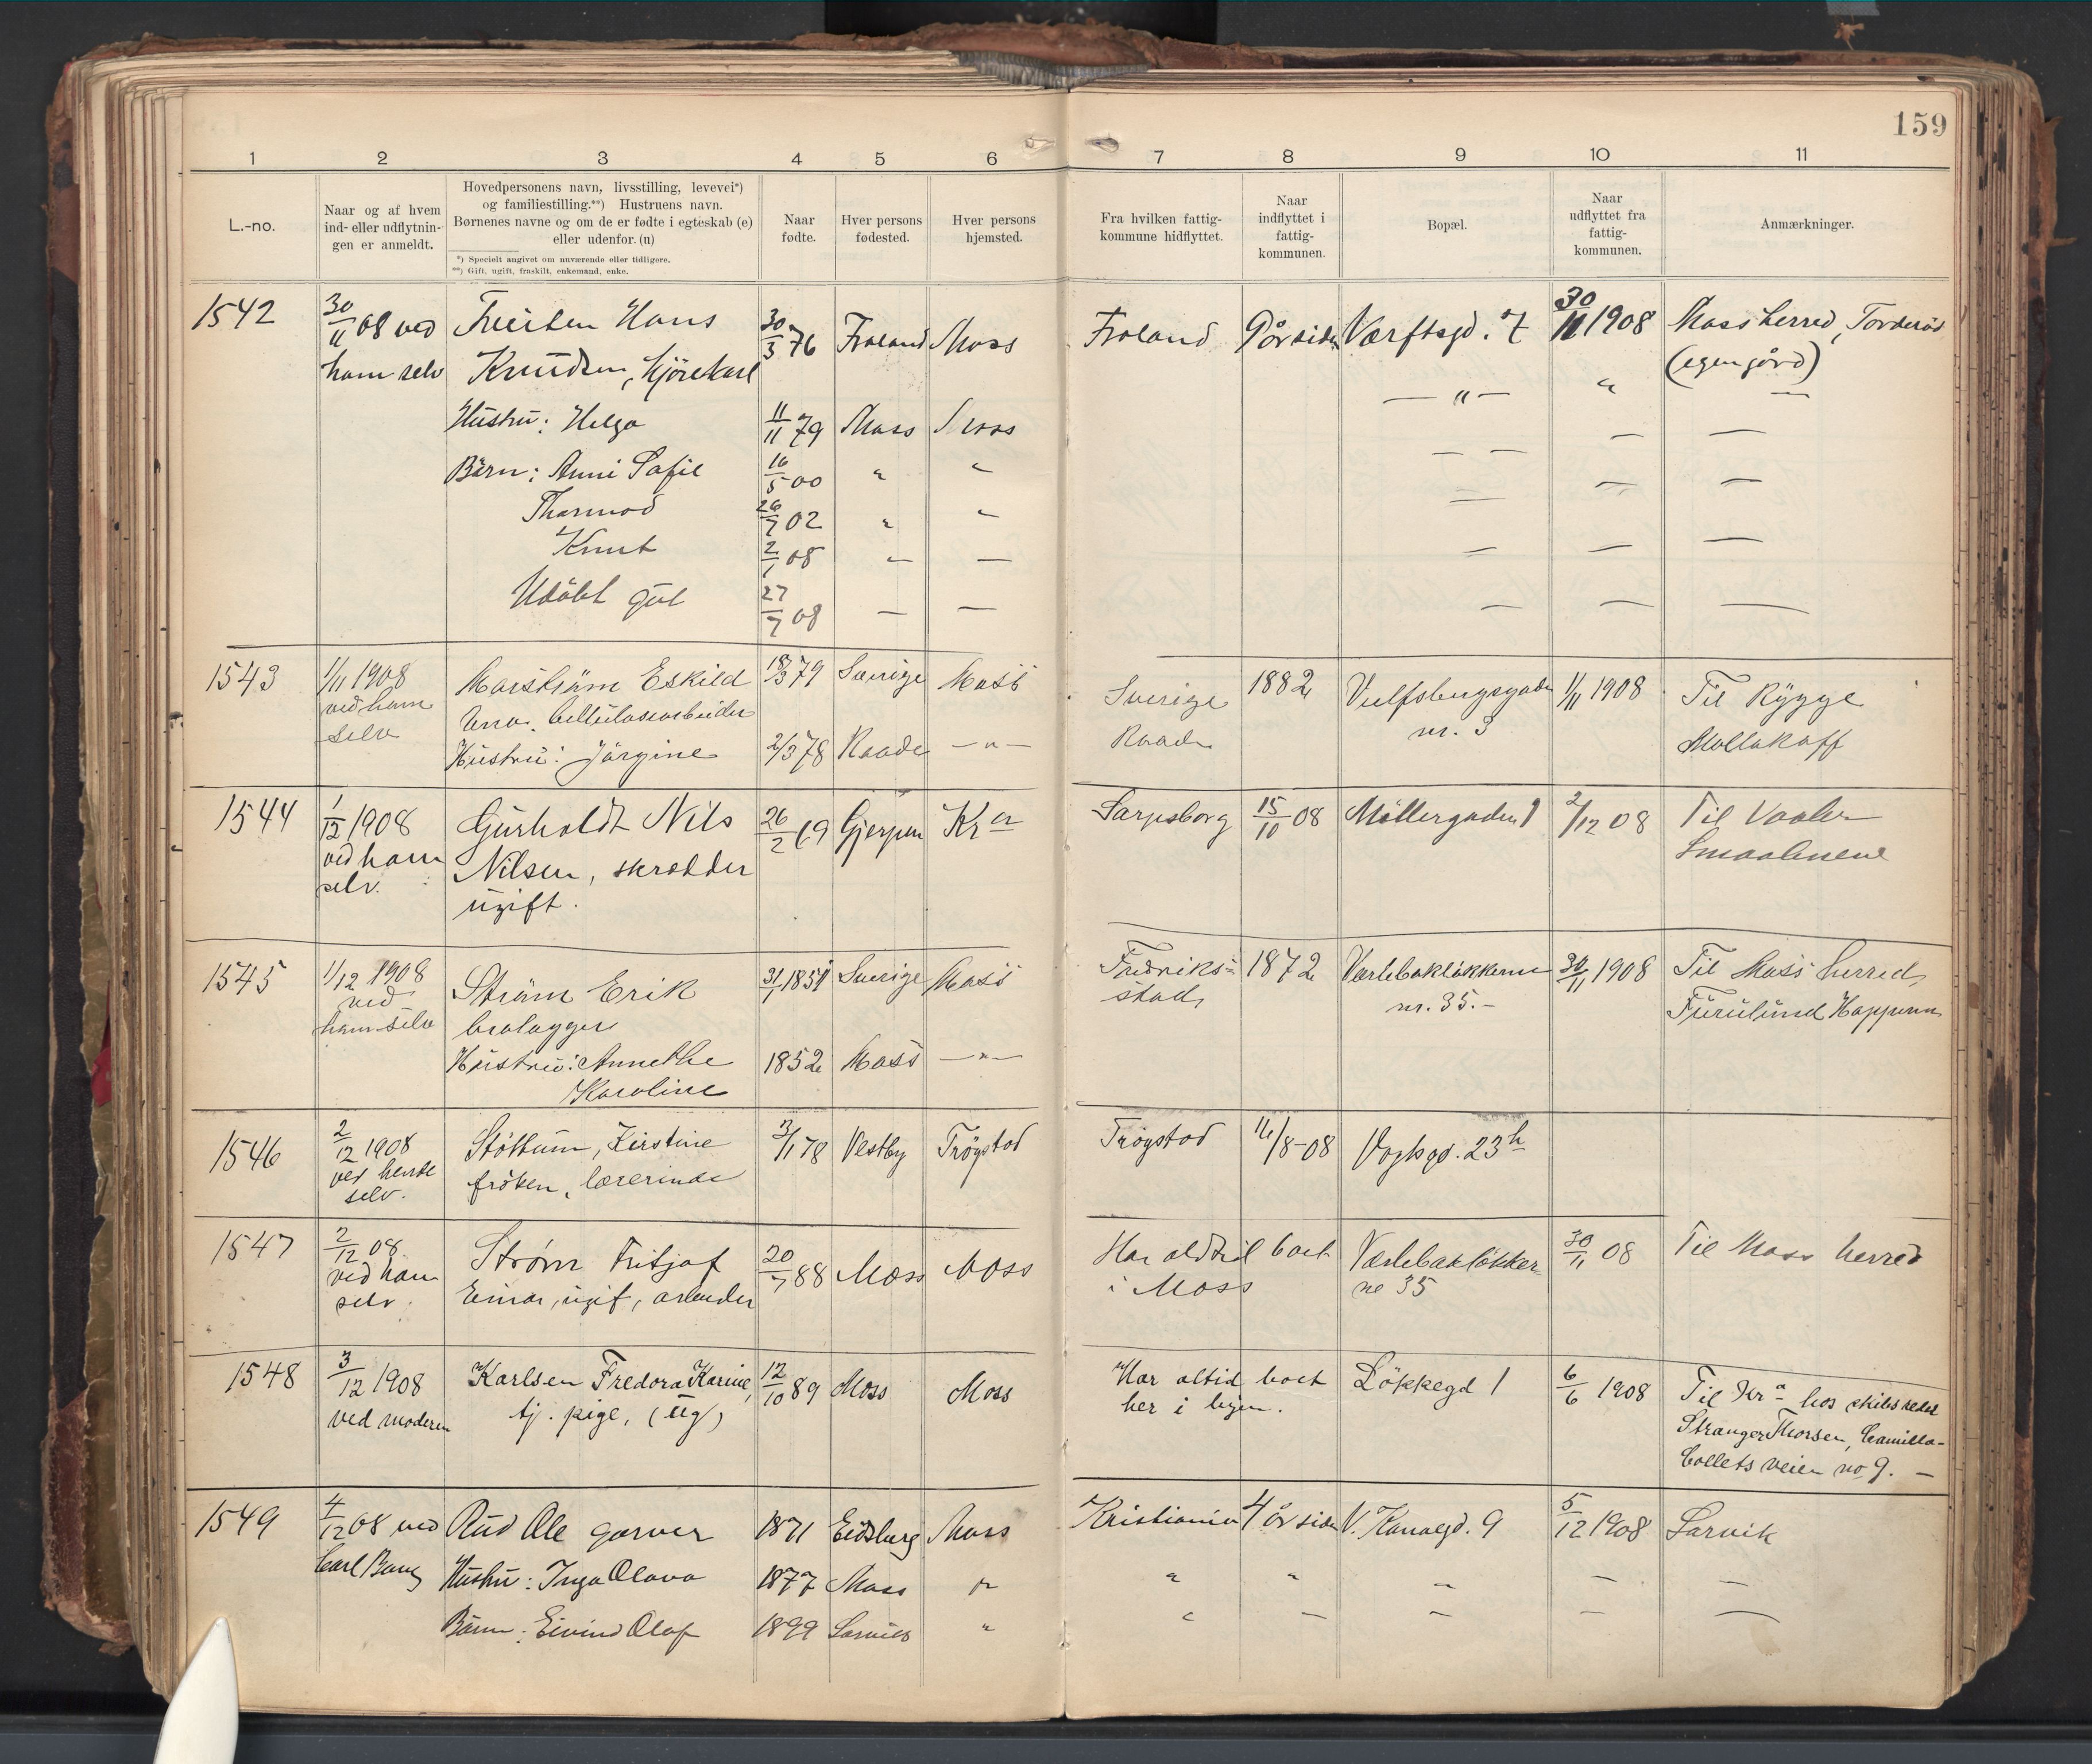 159
1 2 3 4 5 6 7 8 9 10 11
L.-no.
Naar og af hvem
ind- eller udflytnin-
gen er anmeldt.
Hovedpersonens navn, livsstilling, levevei*)
og familiestilling.**) Hustruens navn.
Børnenes navne og om de er fødte i egteskab (e)
eller udenfor. (u)
*) Specielt angivet om nuværende eller tidligere.
**) Gift, ugift, fraskilt, enkemand, enke.
Naar
fødte.
Hver persons
fødested.
Hver persons
hjemsted.
Fra hvilken fattig-
kommune hidflyttet.
Naar
indflyttet i
fattig-
kommunen.
Bopæl.
Naar
udflyttet fra
fattig-
kommunen.
Anmærkninger.
1542 30/11 08 ved Hans 30/3 76 Froland Moss Froland 9 år siden Værftsgd. 7 30/11 1908 Moss herred, Torderød
ham selv Knudsen, kjørekarl (egen gård)
Hustru: Helga 11/11 79 Moss Moss — " — " —
Børn: Anni Sofie 16/5 00 " " — — — —
Thormod 26/7 02 " " — — —
Knut 2/1 08 — — — — —
Udøbt gut 27/7 08 — — — — —
1543 1/11 1908 Marström Eskild 18/3 79 Sverige Moss Sverige 1882 Vulfsbergsgaden 1/11 1908 Til Rygge
ved ham cellulosearbeider Raade nr. 3
selv Hustru: Jörgine 2/3 78 Raade — " —
1544 1/12 1908 Gurholdt Nils 26/2 69 Gjerpen Kr a Sarpsborg 15/10 08 Möllergaden 1 2/12 08 Til Vaaler
ved ham Nilsen, skrædder Smaalenene
selv. ugift.
1545 1/12 1908 Ström Erik 31/1 1851 Sverige Moss Fredriks- 1872 Varlebakløkkerne 30/11 1908 Til Moss herred,
ved brolægger stad, nr. 35.- Furulund
ham selv Hustru: Annethe 1852 Moss — " —
Karoline
1546 2/12 1908 Støttum, Kirstine 3/1 78 Vestby Trøgstad Trøgstad 16/8-08 Vogtsgd. 23 h
ved hende frøken, lærerinde
selv.
1547 2/12 08 Strøm Fritjof 20/7 88 Moss Moss Har altid boet Varlebakløkker- 30/11 08 Til Moss herred
ved ham Einar, ugif, arbeider i Moss ne 35
selv.
1548 3/12 1908 Karlsen Fredora Karine, 12/10 89 Moss Moss Har altid boet Løkkegd 1 6/6 1908 Til Kr a hos skibsreder
ved moderen tj. pige, (ug) her i byen. Stranger Thorsen, Camilla-
Collets veien no 9. —
1549 4/12 08 ved Rud Ole garver 1871 Eidsberg Moss Kristiania 4 år siden V. Kanalgd. 9 5/12 1908 Larvik
Carl Bang Hustru: Inga Olava 1877 Moss " " " " — —
Børn: Eivind Olaf 1899 Larvik " " — — — —